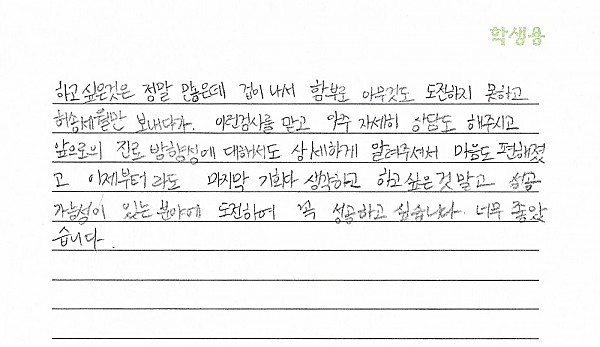 학생용
하고 싶은것은 정말 많은데 겁이나서 함부로 아무것도 도전하지 못하고
허송세월만 보내다가. 이런검사를 받고 아주 자세히 상담도 해주시고
앞으로의 진로 방향성에 대해서도 상세하게 알려주셔서 마음도 편해졌
고 이제부터 라도 마지막 기회다 생각하고 하고싶은것 말고 성공
가능성이 있는 분야에 도전하여 꼭 성공하고 싶습니다. 너무 좋았
습니다.